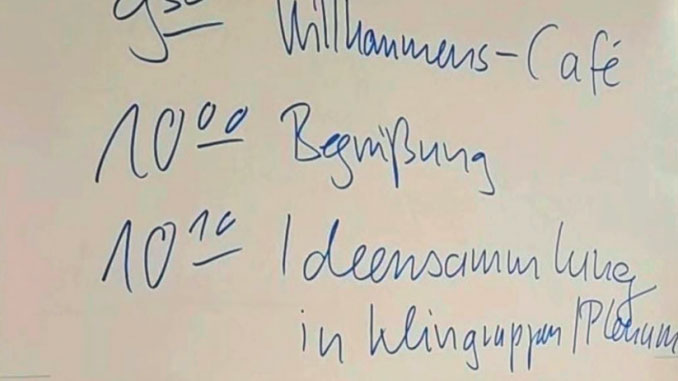 9³⁰ Willkommens-Café
10⁰⁰ Begrüßung
10¹⁰ Ideensammlung
in Kleingruppen/Plenum